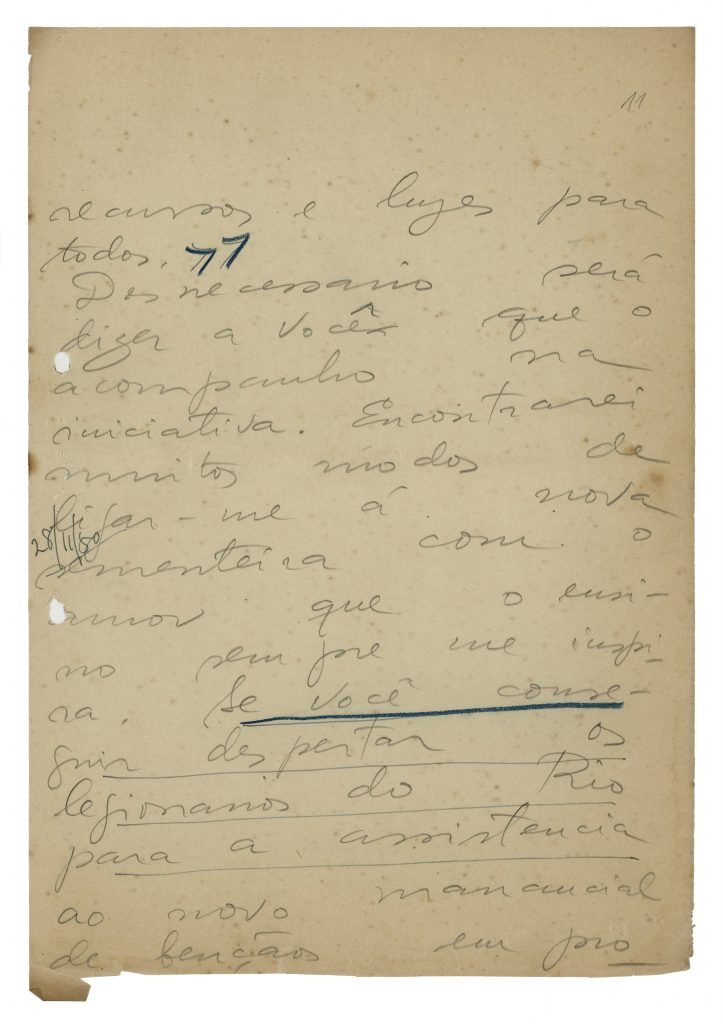 11
recursos e luzes para
todos. 11
Desnecessario será
dizer a você que o
acompanho na
iniciativa. Encontrarei
muitos modos de
ligar-me á nova
28/11/80
sementeira com o
amor que o ensi-
no sempre me inspi-
ra. Se você conse-
guir despertar os
legionarios do Rio
para a assistencia
ao novo manancial
de bençãos em pro